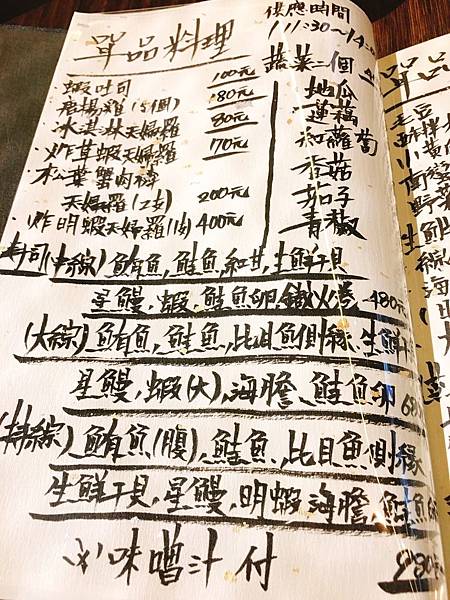 單品料理
供應時間
11:30~14:
蔬菜二個
·蝦吐司 100元
唐揚雞(5個) 180元
冰淇淋天婦羅 80元
·炸草蝦天婦羅 170元
·松葉蟹肉棒
天婦羅(2支) 200元
·炸明蝦天婦羅(1支) 400元
地瓜
蓮藕
和蘿蔔
香菇
茄子
青椒
壽司(中綜)鮪魚,鮭魚,和甘,生鮮干貝
星鰻,蝦,鮭魚卵,鐵火卷 480元
(大綜)鮪魚,鮭魚,比目魚側緣,生鮮干
星鰻,蝦(大),海膽,鮭魚卵 68
(特綜)鮪魚(腹),鮭魚,比目魚側緣
生鮮干貝,星鰻,明蝦,海膽,鮭魚卵
味噌汁付 980元
單品
毛豆
小黃
野菜